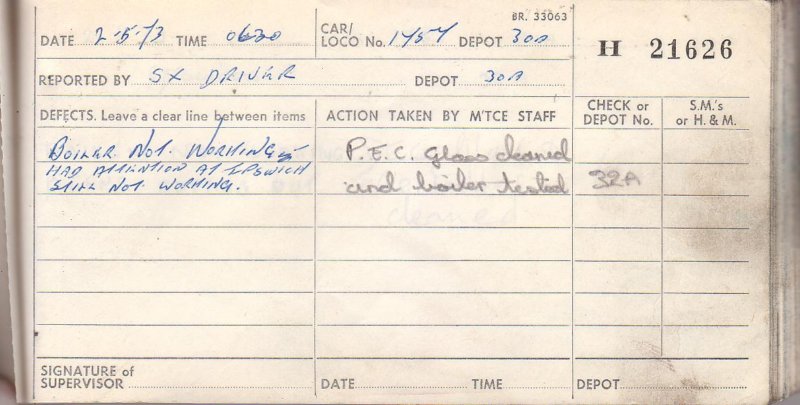 BR. 33063
DATE 2-5-73 TIME 0630 CAR/LOCO No. 1757 DEPOT 30A
H 21626
REPORTED BY SX DRIVER DEPOT 30A
DEFECTS. Leave a clear line between items ACTION TAKEN BY M'TCE STAFF CHECK or DEPOT No. S.M.'s or H. & M.
BOILER NOT WORKING P.E.C. glass cleaned
HAD ATTENTION AT IPSWICH and boiler tested 32A
STILL NOT WORKING.
cleaned
SIGNATURE of
SUPERVISOR DATE TIME DEPOT